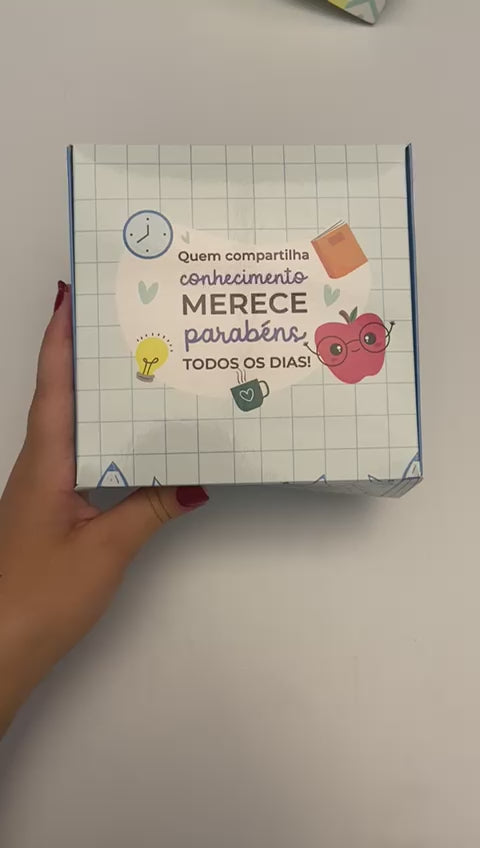 Quem compartilha
conhecimento
MERECE
parabéns
TODOS OS DIAS!